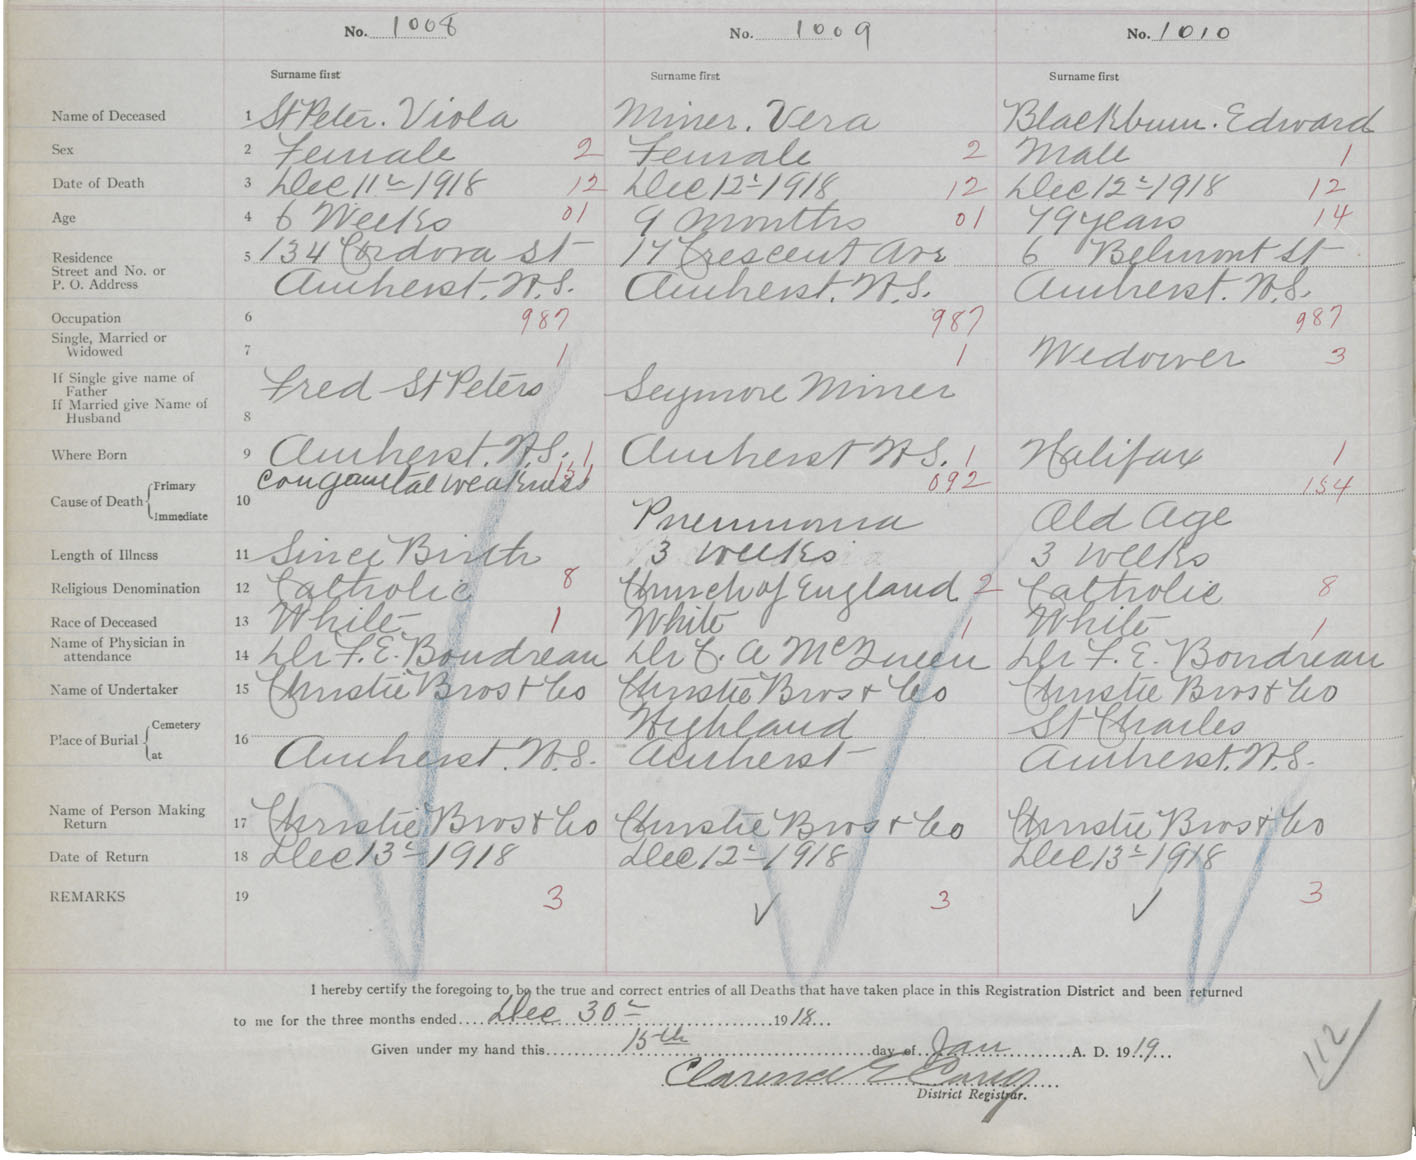 No. 1008 No. 1009 No. 1010
Surname first Surname first Surname first
Name of Deceased 1 St Peter. Viola Miner. Vera Blackburn. Edward
Sex 2 Female 2 Female 2 Male 1
Date of Death 3 Dec 11th 1918 12 Dec 12th 1918 12 Dec 12th 1918 12
Age 4 6 Weeks 01 9 months 01 79 years 14
Residence 5 134 Cordova St 17 Crescent Ave 6 Belmont St
Street and No. or
P. O. Address Amherst. N.S. Amherst. N.S. Amherst. N.S.
Occupation 6 987 987 987
Single, Married or
Widowed 7 1 1 Wedower 3
If Single give name of
Father Fred St Peters Seymore Miner
If Married give Name of
Husband 8
Where Born 9 Amherst. N.S. 1 Amherst N.S. 1 Halifax 1
Cause of Death Primary Congenital weakness 151 092 154
Immediate 10 Pneumonia Old Age
Length of Illness 11 Since Birth 3 weeks 3 weeks
Religious Denomination 12 Catholic 8 Church of England 2 Catholic 8
Race of Deceased 13 White 1 White 1 White 1
Name of Physician in
attendance 14 Dr F. E. Boudreau Dr C. A McQueen Dr F. E. Boudreau
Name of Undertaker 15 Christie Bros & Co Christie Bros & Co Christie Bros & Co
Place of Burial Cemetery 16 Highland St Charles
at Amherst. N.S. Amherst Amherst. N.S.
Name of Person Making
Return 17 Christie Bros & Co Christie Bros & Co Christie Bros & Co
Date of Return 18 Dec 13th 1918 Dec 12th 1918 Dec 13th 1918
REMARKS 19 3 3 3
I hereby certify the foregoing to be the true and correct entries of all Deaths that have taken place in this Registration District and been returned
to me for the three months ended Dec 30th 1918
Given under my hand this 15th day of Jan A. D. 1919
Clarence E
District Registrar.
112